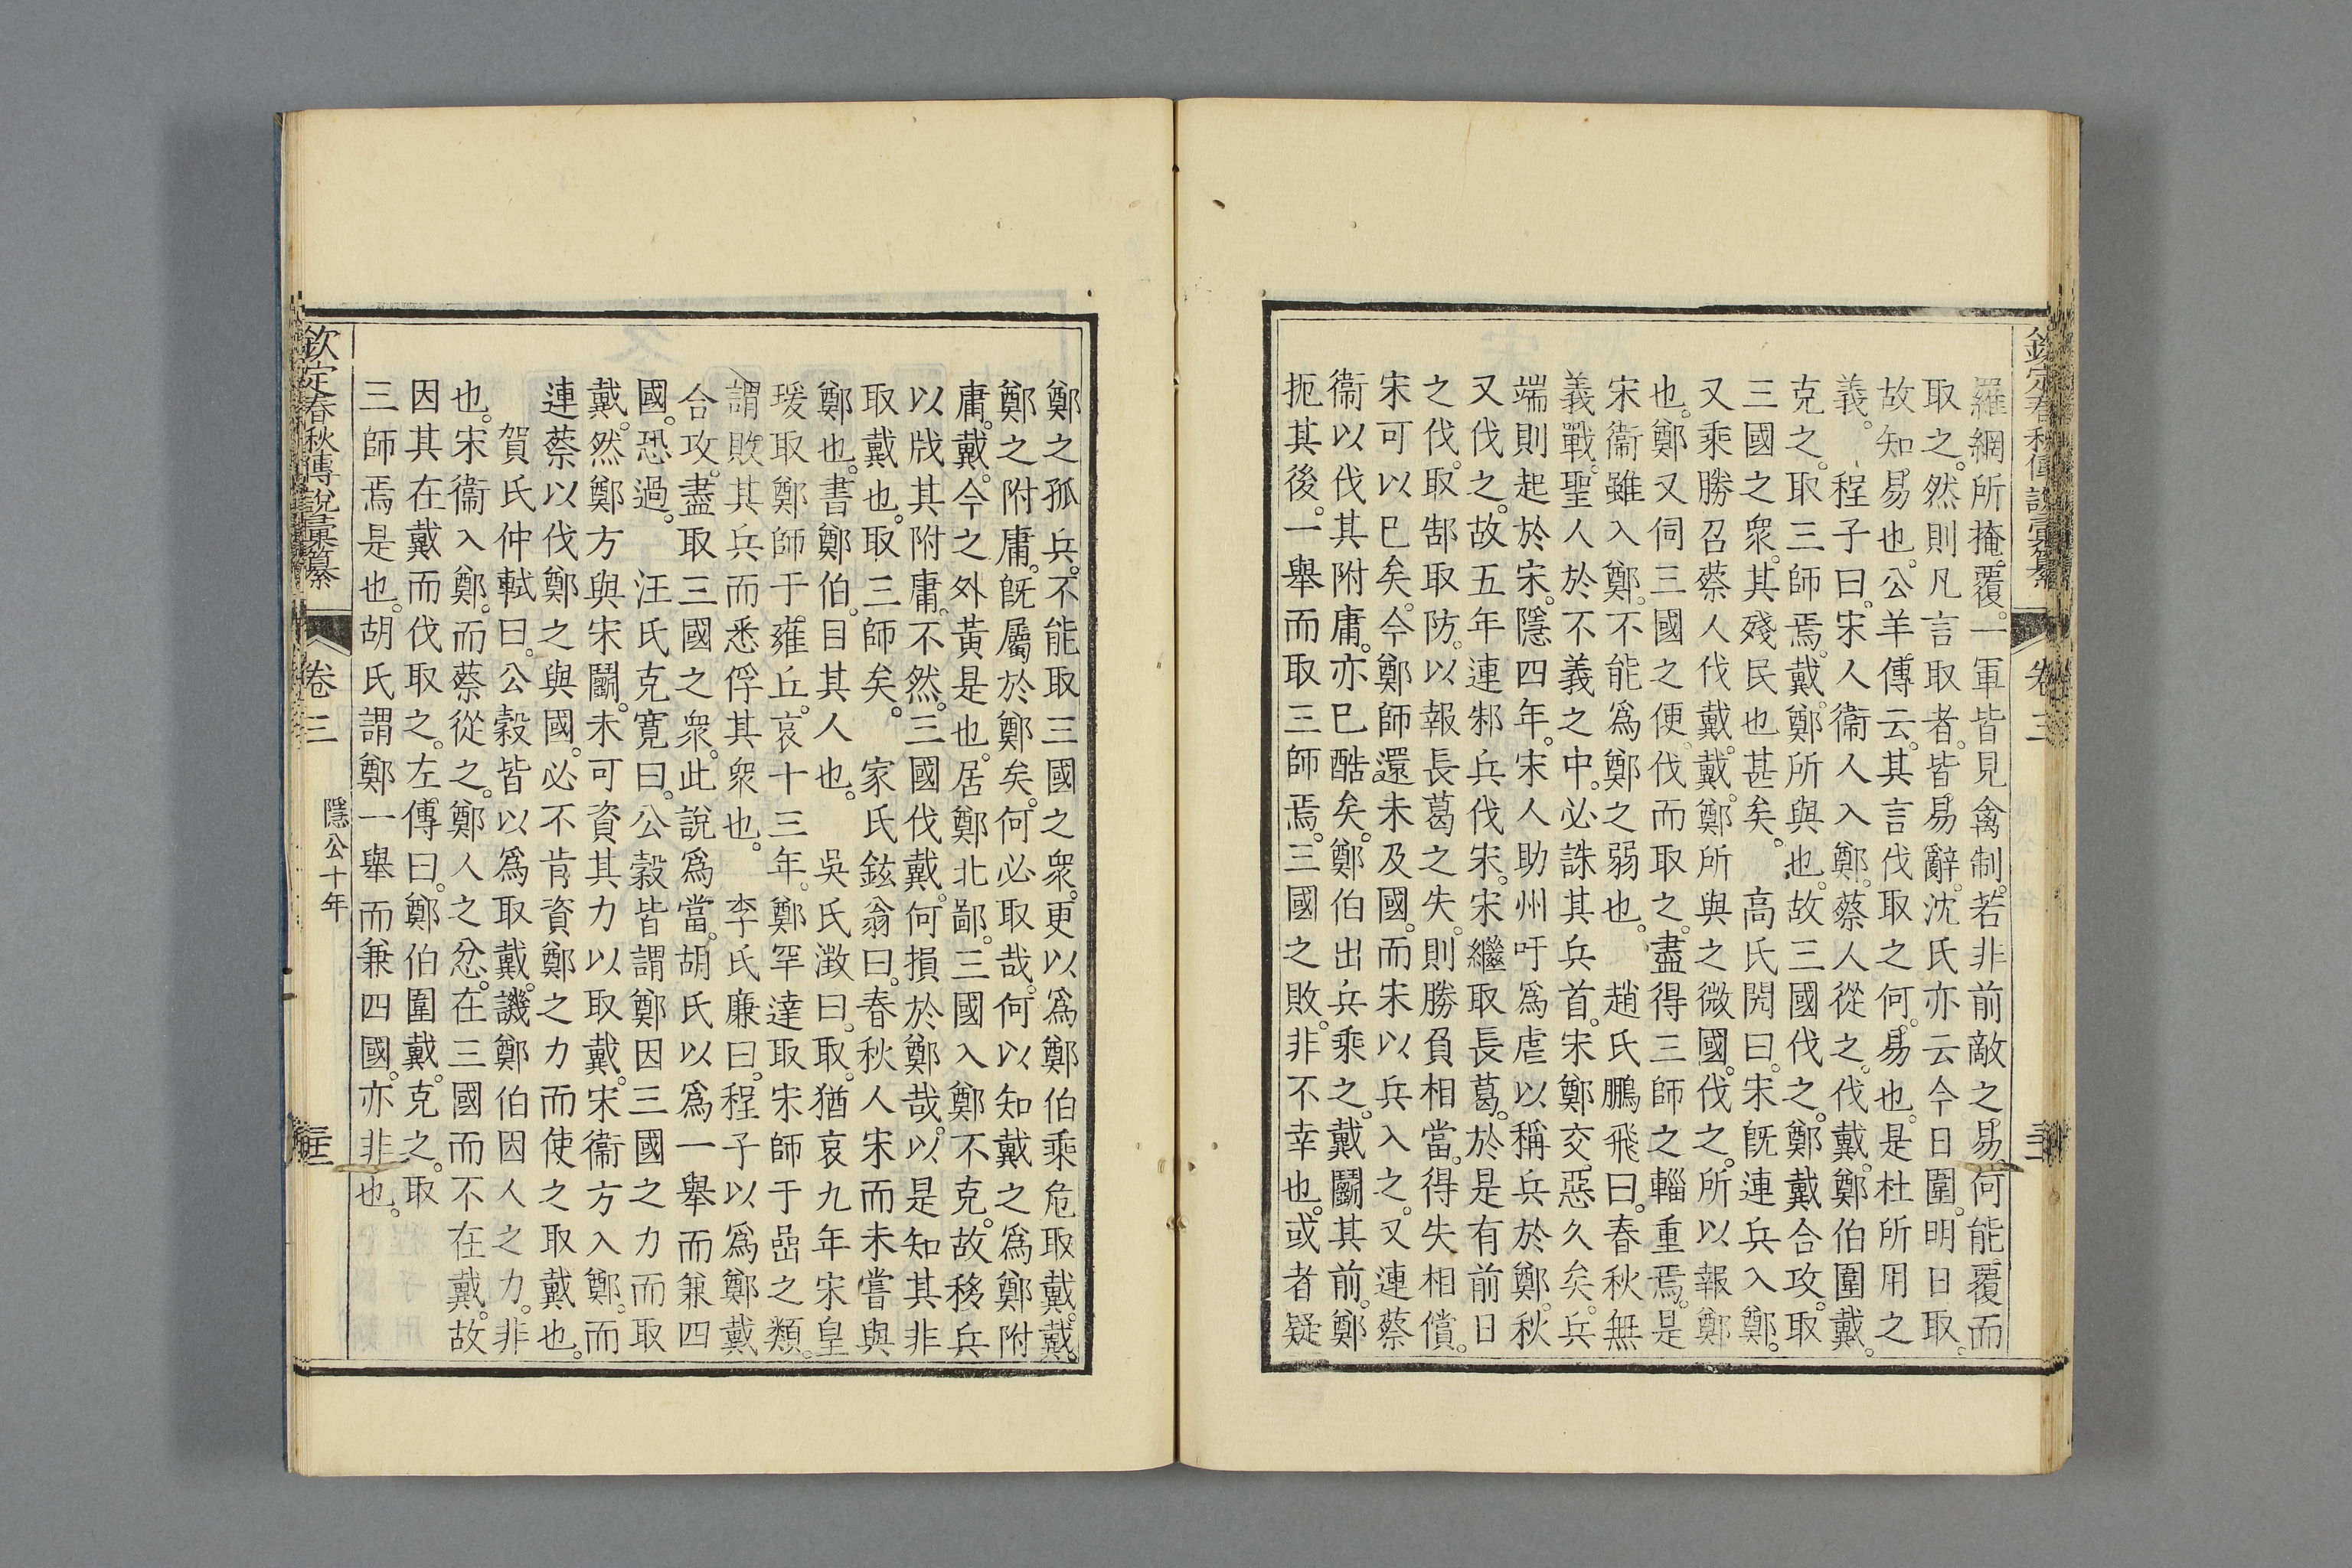 欽定春秋傳說彙纂 卷三
羅網所掩。覆一軍皆見禽制。若非前敵之易。何能覆而
取之。然則凡言取者。皆易辭。沈氏亦云今日圍。明日取。
故知易也。公羊傳云。其言伐取之何。易也。是杜所用之
義。 程子曰。宋人衞人入鄭。蔡人從之。伐戴。鄭伯圍戴。
克之。取三師焉。戴鄭所與也。故三國伐之。鄭戴合攻。取
三國之衆。其殘民也甚矣。 高氏閌曰。宋旣連兵入鄭。
又乘勝召蔡人伐戴。戴鄭所與之微國。伐之。所以報鄭
也。鄭又伺三國之便。伐而取之。盡得三師之輜重焉。是
宋衞雖入鄭。不能爲鄭之弱也。 趙氏鵬飛曰。春秋無
義戰。聖人於不義之中。必誅其兵首。宋鄭交惡久矣。兵
端則起於宋。隱四年。宋人助州吁爲虐以稱兵於鄭。秋
又伐之。故五年連邾兵伐宋。宋繼取長葛。於是有前日
之伐。取郜取防。以報長葛之失。則勝負相當。得失相償。
宋可以已矣。今鄭師還未及國。而宋以兵入之。又連蔡
衞以伐其附庸。亦已酷矣。鄭伯出兵乘之。戴鬭其前。鄭
扼其後。一舉而取三師焉。三國之敗。非不幸也。或者疑
鄭之孤兵。不能取三國之衆。更以爲鄭伯乘危取戴。戴。
鄭之附庸。旣屬於鄭矣。何必取哉。何以知戴之爲鄭附
庸。戴。今之外黃是也。居鄭北鄙。三國入鄭不克。故移兵
以戕其附庸。不然。三國伐戴。何損於鄭哉。以是知其非
取戴也。取三師矣。 家氏鉉翁曰。春秋人宋而未嘗與
鄭也。書鄭伯。目其人也。 吳氏澂曰。取。猶哀九年宋皇
瑗取鄭師于雍丘。哀十三年。鄭罕達取宋師于嵒之類。
謂敗其兵而悉俘其衆也。 李氏廉曰。程子以爲鄭戴
合攻。盡取三國之衆。此說爲當。胡氏以爲一舉而兼四
國。恐過。 汪氏克寬曰。公穀皆謂鄭因三國之力而取
戴。然鄭方與宋鬭。未可資其力以取戴。宋衞方入鄭。而
連蔡以伐鄭之與國。必不肯資鄭之力而使之取戴也。
賀氏仲軾曰。公穀皆以爲取戴。譏鄭伯因人之力。非
也。宋衞入鄭。而蔡從之。鄭人之忿。在三國而不在戴。故
因其在戴而伐取之。左傳曰。鄭伯圍戴。克之。取
三師焉是也。胡氏謂鄭一舉而兼四國。亦非也。
欽定春秋傳說彙纂 卷三 隱公十年